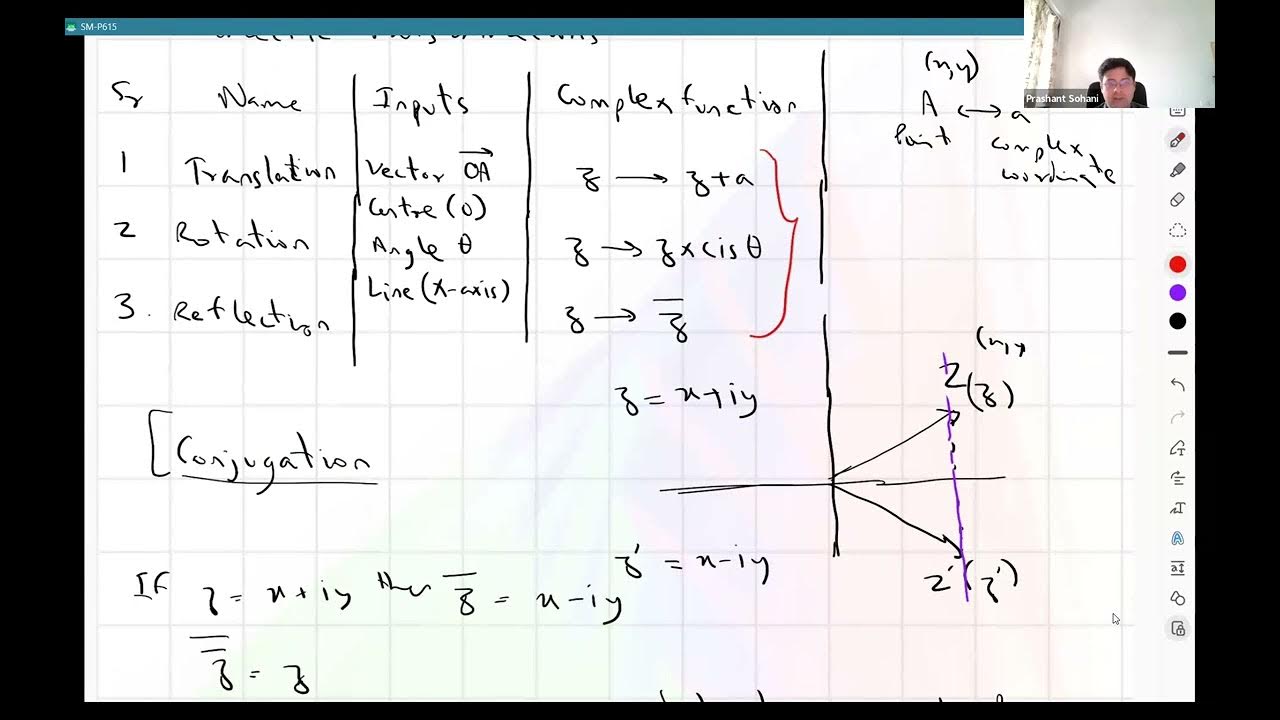 SM-P615
Prashant Sohani
Sr Name Inputs Complex function
1 Translation Vector \overrightarrow{OA} z → z+a
Centre (O)
2 Rotation Angle θ z → z×cisθ
Line (X-axis)
3. Reflection z → \overline{z}
(x,y)
A ↔ a
Point complex
coordinate
z = x+iy
[Conjugation
Z(z)
z' = x-iy
Z'(z')
If z = x+iy then \overline{z} = x-iy
\overline{\overline{z}} = z